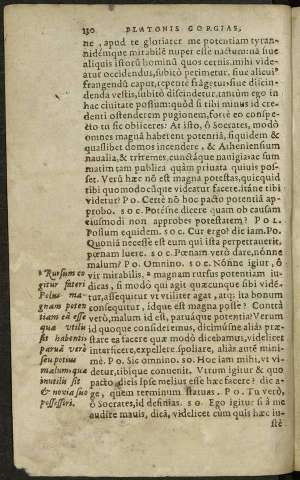 130 PLATONIS GORGIAS,
ne, apud te glorieter me potentiam tyran-
nidémque mirabilē nuper esse nactum: ná siue
aliquis istorū hominū quos cernis mihi vide-
atur occidendus, subitò perimetur. siue alicui⁹
frangendū caput, repentè frāgetur: siue discin-
denda vestis, subitò discindetur, tantùm ego in
hac ciuitate possum: quòd si tibi minus id cre-
denti ostenderem pugionem, fortè eo conspe-
cto tu sic obiiceres: At isto, ô Socrates, modò
omnes magnā habebunt potentiā, siquidem &
quaslibet domos incendere, & Atheniensium
naualia, & triremes, cunctáque nauigia: ac sum
matim tam publica quàm priuata quiuis pos-
set. Verū hæc nō est magna potestas, quicquid
tibi quomodocūque videatur facere. itáne tibi
videtur? PO. Certè nō hoc pacto potentiā ap-
probo. SOC. Potésne dicere quam ob causam
eiusmodi non approbes potestatem? POL.
Possum equidem. SOC. Cur ergo? dic iam. Po.
Quoniā necesse est eum qui ista perpetrauerit,
pœnam luere. Pœnam verò dare, nónne
malum? PO. Omnino. SOC. Nōnne igitur, ô
vir mirabilis, ª magnam rursus potentiam iu-
dicas, si modò qui agit quæcunque sibi vide-
tur, assequatur vt vtiliter agat, atq; ita bonum
consequitur, idque est magna posse? Contrà
verò, malum id est, paruáque potentia? Verum
id quoque consideremus, dicimúsne aliàs præ-
stare ea facere quæ modò dicebamus, videlicet
interficere, expellere, spoliare, aliàs autē mini-
mè. PO. Sic omnino. SO. Hoc iam mihi, vt vi-
detur, tibique conuenit. Vtrum igitur & quo
pacto dicis ipse melius esse hæc facere? dic a-
ge, quem terminum statuas. PO. Tu verò,
ô Socrates, id definias. SO. Ego igitur si à me
audire mauis, dicā, videlicet cum quis hæc iu-
stè
ª Rursum co
gitur fateri
Polus ma-
gnam poten
tiam eā esse
quæ vtilis
sit habenti:
paruā verò
seu potius
malum, quæ
inutilis sit
& noxia suo
possessori.